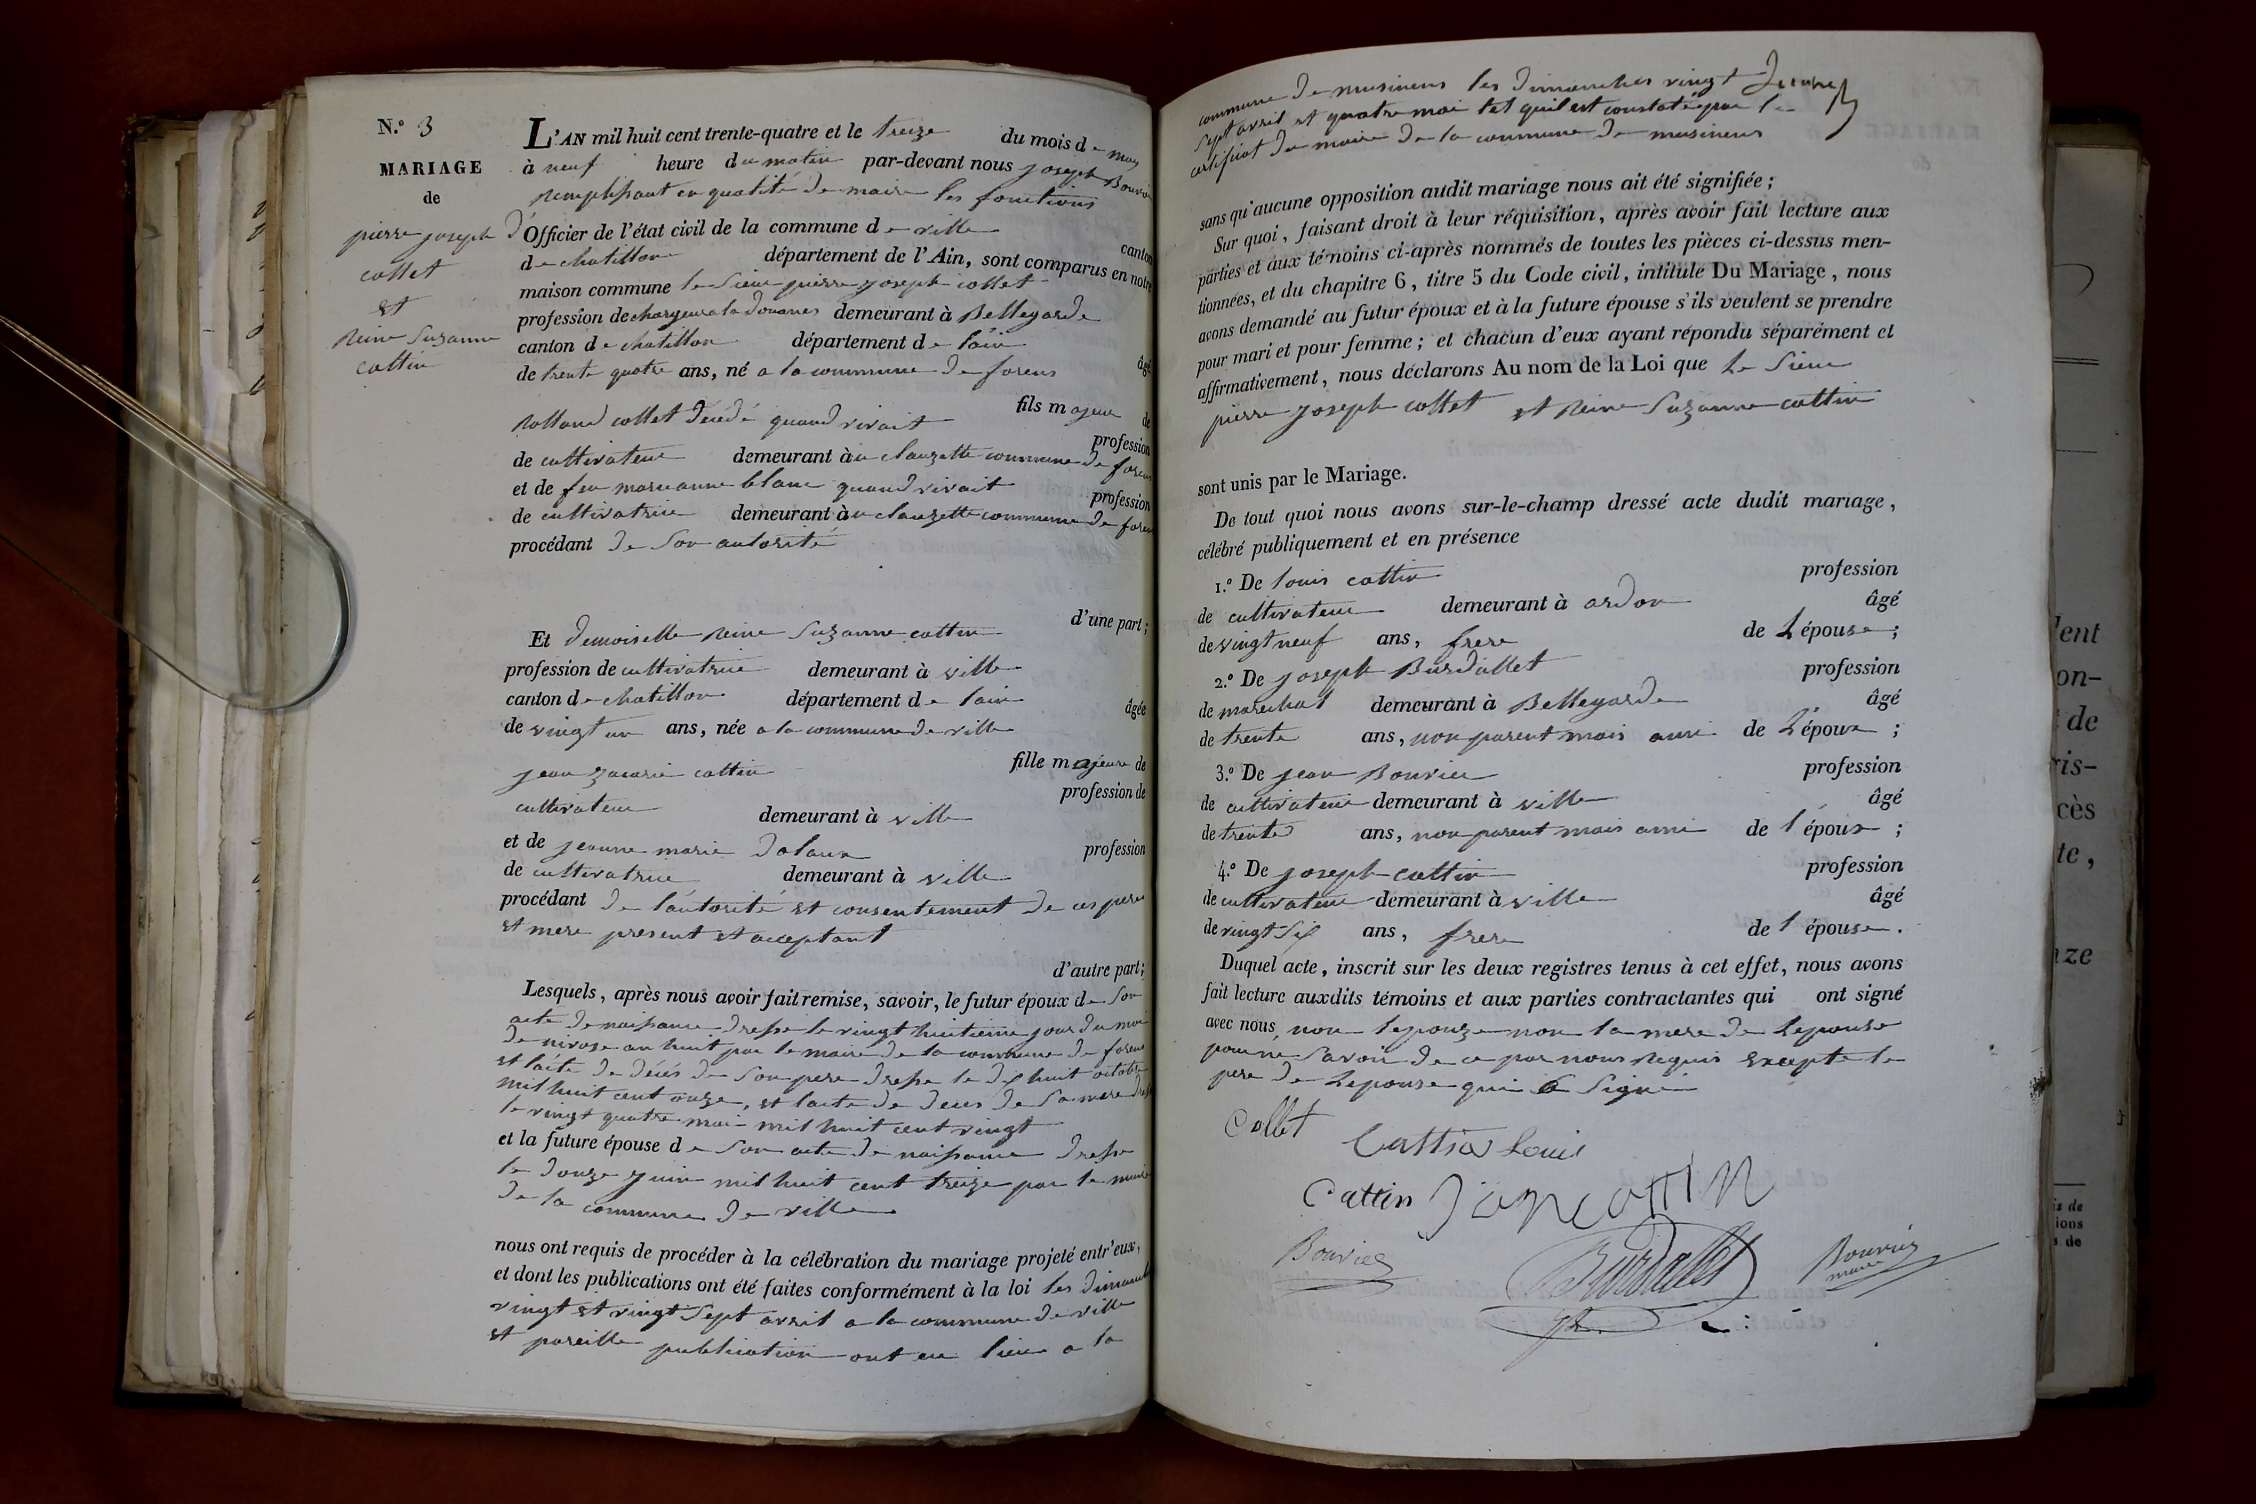 N.º 3
MARIAGE
de
pierre joseph
collet
et
Reine Suzanne
cattin
L'AN mil huit cent trente-quatre et le treize du mois de may
à neuf heure du matin par-devant nous joseph Bouvier
remplissant en qualité de maire les fonctions
d'Officier de l'état civil de la commune de ville canton
de chatillon département de l'Ain, sont comparus en notre
maison commune le Sieur pierre joseph collet
profession de chargeur a la douanes demeurant à Bellegarde
canton de chatillon département de l'ain âgé
de trente quatre ans, né a la commune de forens
fils majeur de
Rolland collet décédé quand vivait profession
de cultivateur demeurant à clauzette commune de forens
et de feu marianne blanc quand vivait profession
de cultivatrice demeurant à clauzette commune de forens
procédant de Son autorité
d'une part;
Et demoiselle Reine Suzanne cattin
profession de cultivatrice demeurant à ville
canton de chatillon département de lain âgée
de vingt un ans, née a la commune de ville
fille majeure de
jean zacarie cattin profession de
cultivateur demeurant à ville
et de jeanne marie profession
de cultivatrice demeurant à ville
procédant de l'autorité et consentement de ces pere
et mere present et acceptant
d'autre part;
Lesquels, après nous avoir fait remise, savoir, le futur époux de Son
acte de naissance dressé le vingt huitieme jour du moi
de nivose an huit par le maire de la commune de forens
et l'acte de décés de Son pere dressé le dix huit octobre
mil huit cent onze, et lacte de deces de Sa mere dressé
le vingt quatre mai mil huit cent vingt
et la future épouse de Son acte de naissance dressé
le douze juin mil huit cent treize par le maire
de la commune de ville
nous ont requis de procéder à la célébration du mariage projeté entr'eux,
et dont les publications ont été faites conformément à la loi les dimanches
vingt et vingt Sept avril a la commune de ville
et pareille publication ont eu lieu a la
commune de musinens les dimanches vingt
Sept avril et quatre mai tel quil est constaté par le
certificat du maire de la commune de musinens
sans qu'aucune opposition audit mariage nous ait été signifiée;
Sur quoi, faisant droit à leur réquisition, après avoir fait lecture aux
parties et aux témoins ci-après nommés de toutes les pièces ci-dessus men-
tionnées, et du chapitre 6, titre 5 du Code civil, intitulé Du Mariage, nous
avons demandé au futur époux et à la future épouse s'ils veulent se prendre
pour mari et pour femme; et chacun d'eux ayant répondu séparément et
affirmativement, nous déclarons Au nom de la Loi que Le Sieur
pierre joseph collet et Reine Suzanne cattin
sont unis par le Mariage.
De tout quoi nous avons sur-le-champ dressé acte dudit mariage,
célébré publiquement et en présence
1.º De louis cattin profession
de cultivateur demeurant à ardon âgé
de vingt neuf ans, frere de L'épouse;
2.º De joseph Burdallet profession
de marechal demeurant à Bellegarde âgé
de trente ans, non parent mais ami de L'époux;
3.º De jean Bouvier profession
de cultivateur demeurant à ville âgé
de trente ans, non parent mais ami de l'époux;
4.º De joseph cattin profession
de cultivateur demeurant à ville âgé
de vingt Six ans, frere de l'épouse.
Duquel acte, inscrit sur les deux registres tenus à cet effet, nous avons
fait lecture auxdits témoins et aux parties contractantes qui ont signé
avec nous, non lepouze non la mere de Lepouse
pour ne Savoir de ce par nous Requis excepte le
pere de Lepouse qui a Signé
Collet
Cattin Louis
Cattin
Bouvier
Burdallet
Bouvier
maire